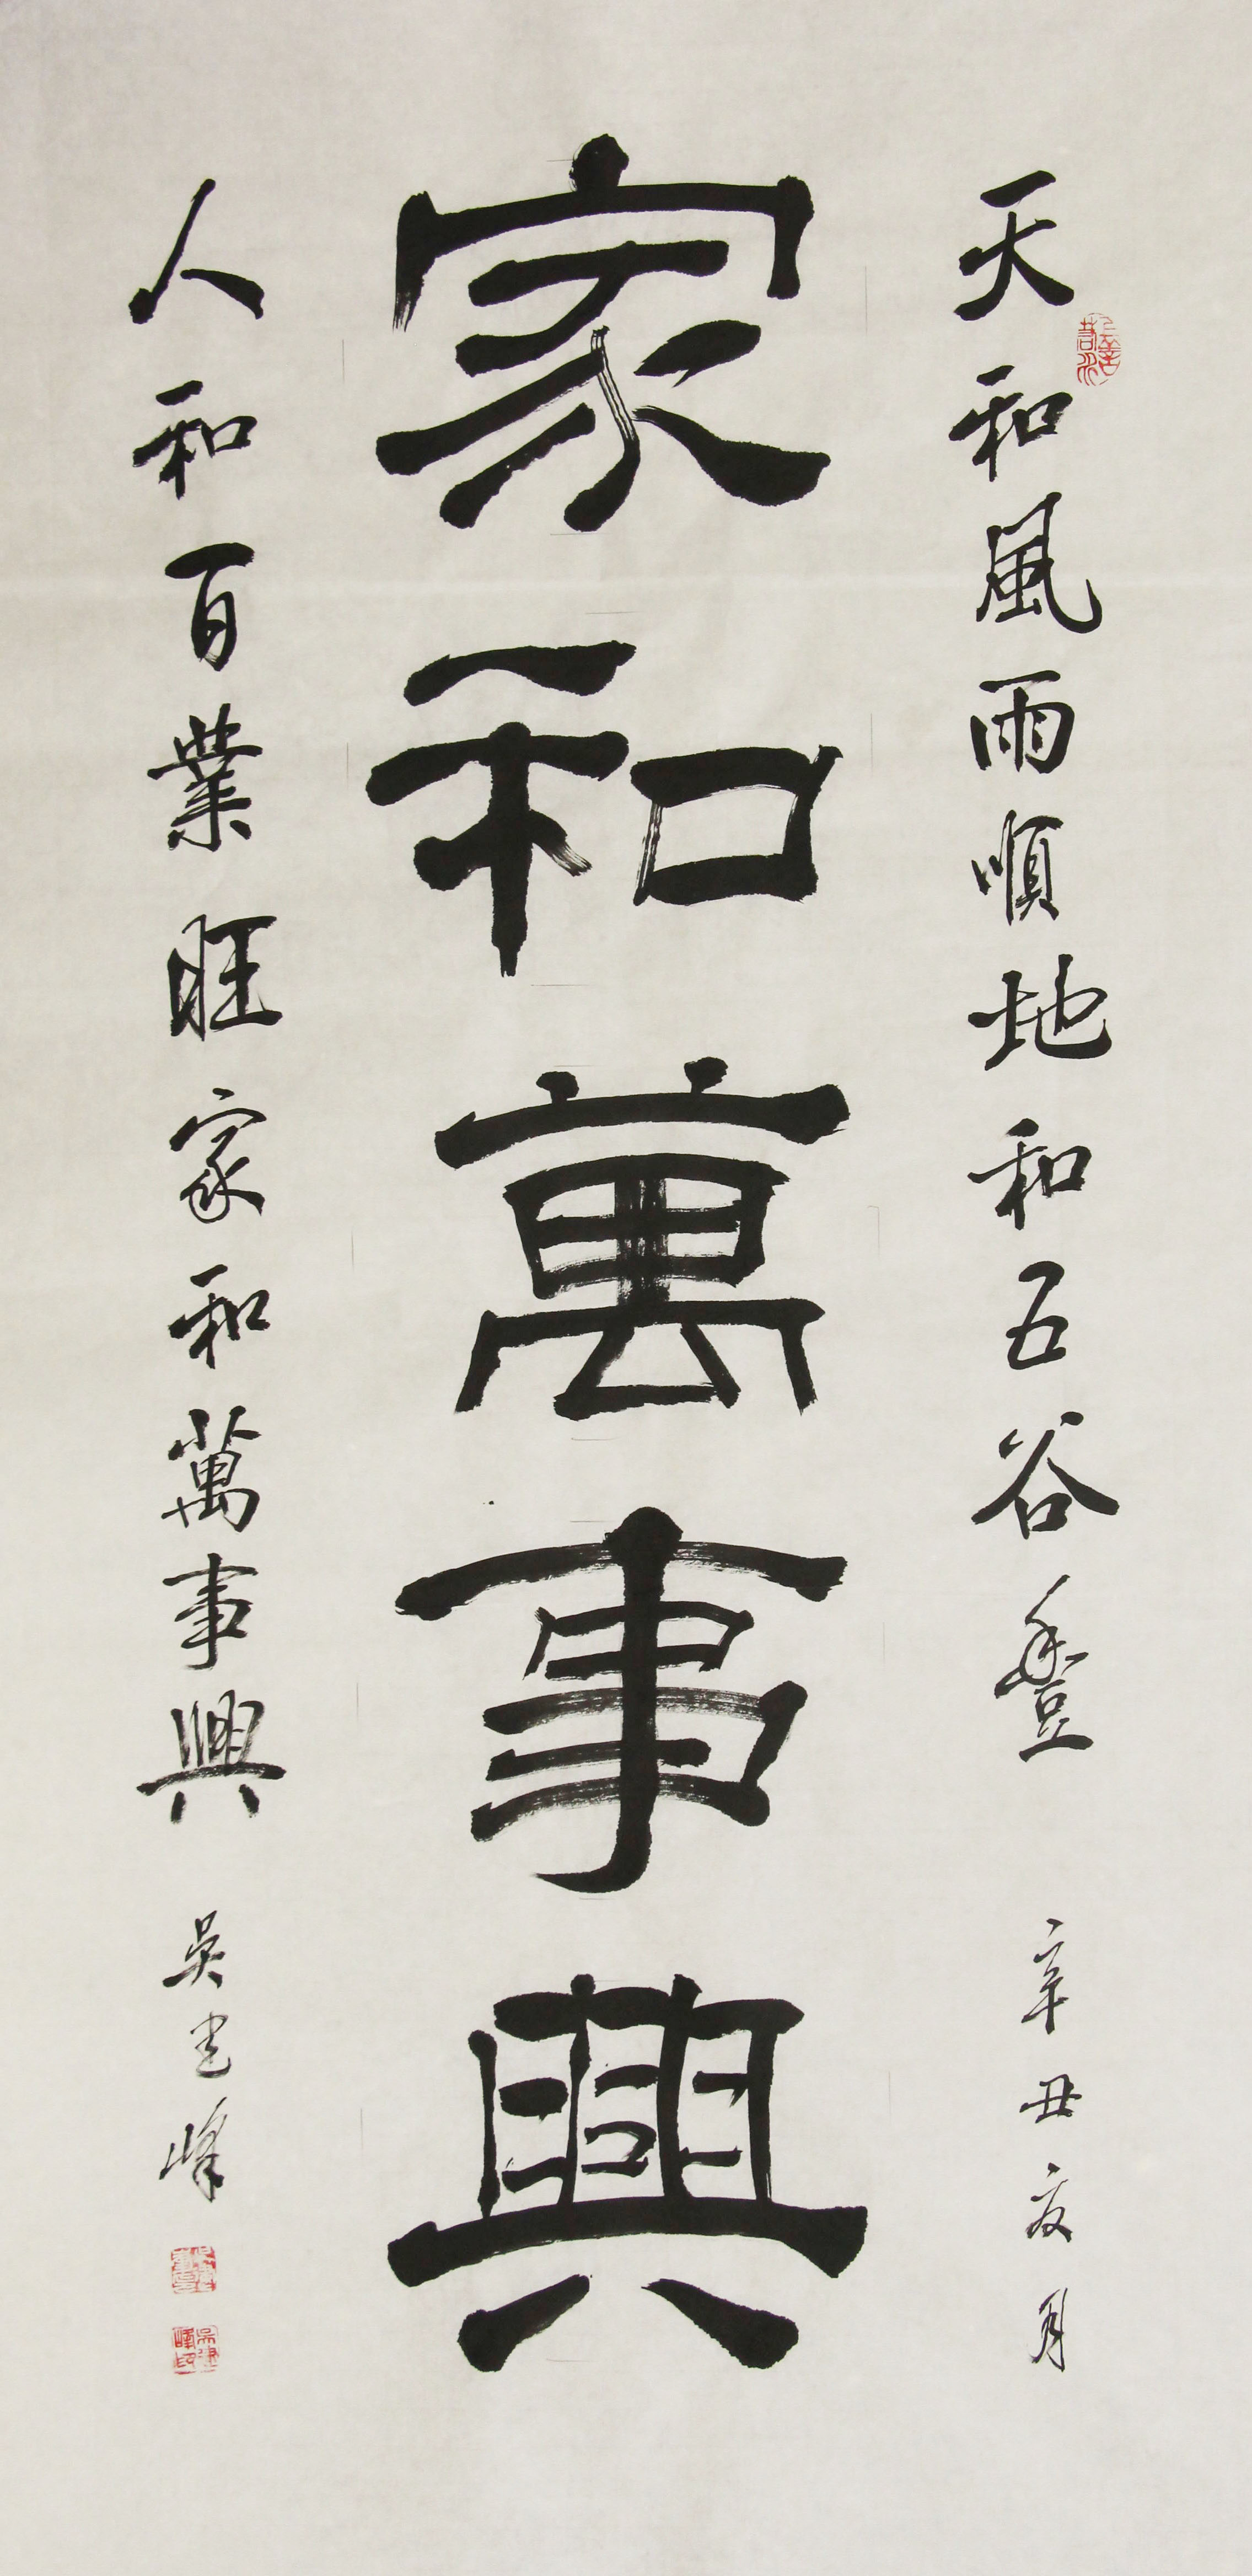 天和風雨順地和五谷豐 辛丑夏月
上善若水
家和萬事興
人和百業旺家和萬事興 吴建峰
吴建峰印